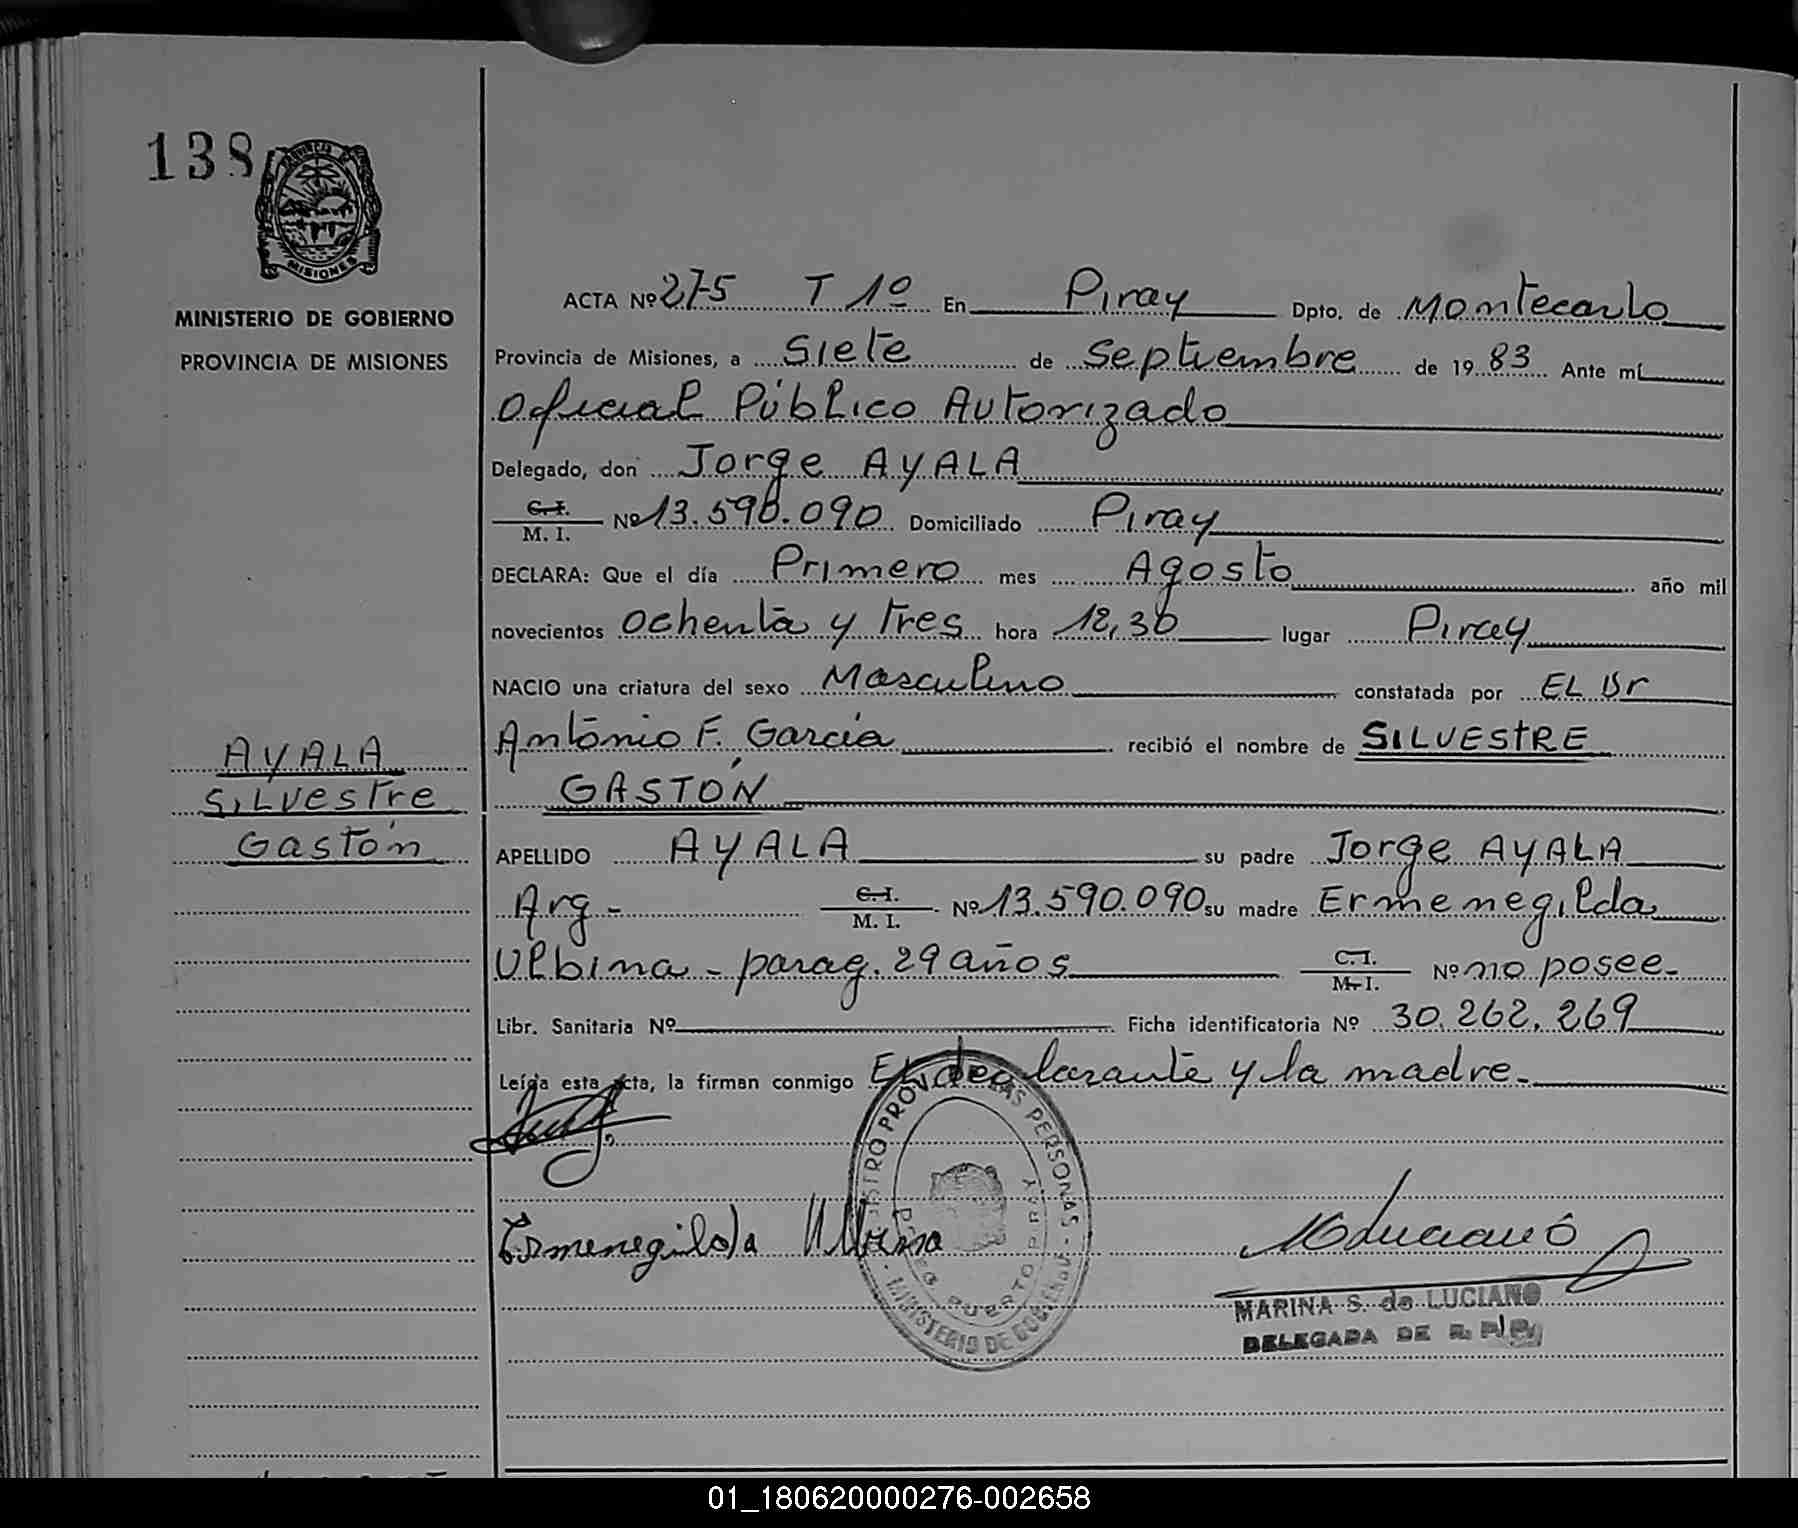 138
PROVINCIA DE
MISIONES
MINISTERIO DE GOBIERNO
PROVINCIA DE MISIONES
ACTA Nº 275 T 1º En Piray Dpto. de Montecarlo
Provincia de Misiones, a Siete de Septiembre de 1983 Ante mí
Oficial Público Autorizado
Delegado, don Jorge AYALA
C. I.
M. I. Nº 13.590.090 Domiciliado Piray
DECLARA: Que el día Primero mes Agosto año mil
novecientos ochenta y tres hora 12,30 lugar Piray
NACIO una criatura del sexo Masculino constatada por EL Dr
Antonio F. García recibió el nombre de SILVESTRE
GASTÓN
AYALA
Silvestre
Gastón
APELLIDO AYALA su padre Jorge AYALA
Arg - C. I. M. I. Nº 13.590.090 su madre Ermenegilda
Ulbina - parag. 29 años C. I. M. I. Nº no posee.
Libr. Sanitaria Nº Ficha identificatoria Nº 30.262.269
Leída esta acta, la firman conmigo El declarante y la madre.
Ermenegilda Ulbina
MINISTERIO DE GOBIERNO
PUERTO PIRAY
MARINA S. de LUCIANO
DELEGADA DE R. P. P.
01_180620000276-002658